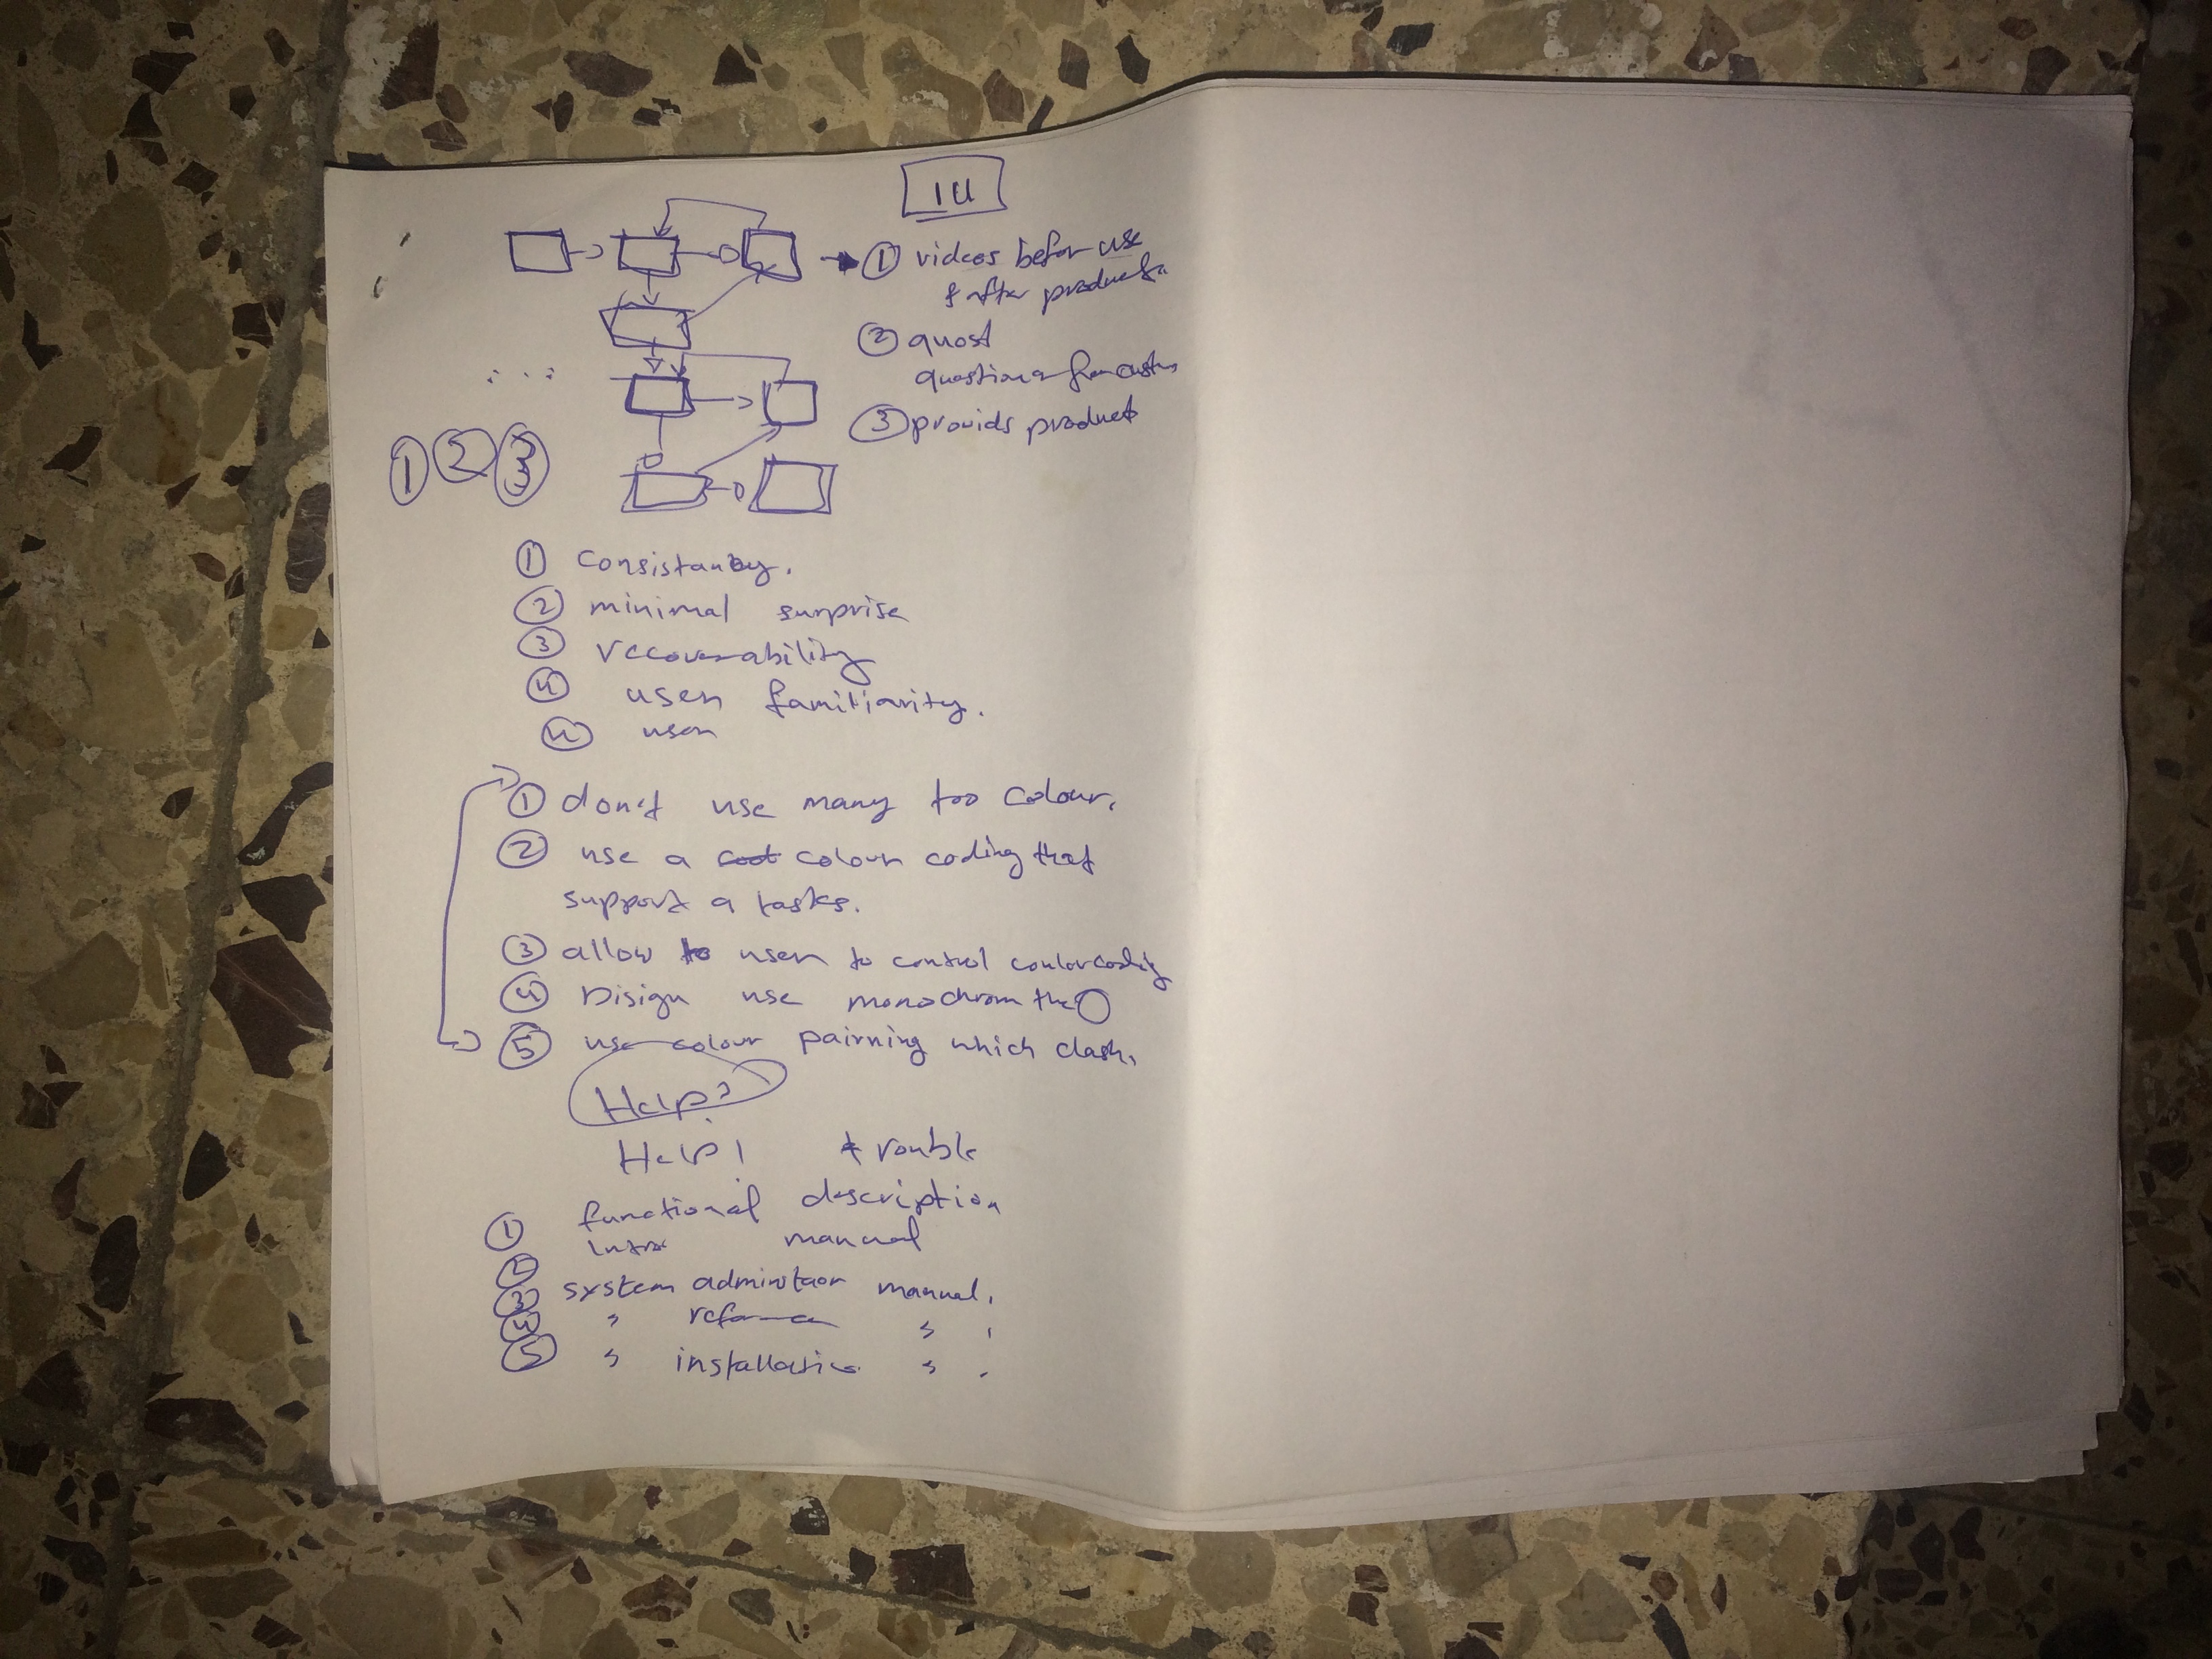 14
① videos befor use
& after product
② quost
questiona from
③ provids product
① ② ③
① Consistancy.
② minimal surprise
③ recoverability
④ user familiarity.
④ user
① don't use many too colour.
② use a colour coding that
support a tasks.
③ allow to user to control coulor coding
④ Disign use monochrom the
⑤ use colour pairning which clash.
Help?
Help! trouble
functional description
① intro manual
②
③ system adminstaor manual.
④ " reference "
⑤ " installation " .